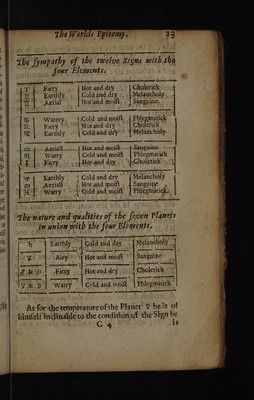 The Worlds Epitomy. 23
The sympathy of the twelve Signs with the
four Elements.
♈ Fiery Hot and dry Cholerick
♉ Earthly Cold and dry Melancholy
♊ Aeriall Hot and moist Sanguine
♋ Watery Cold and moist Phlegmatick
♌ Fiery Hot and dry Cholerick
♍ Earthly Cold and dry Melancholy
♎ Aeriall Hot and moist Sanguine
♏ Watry Cold and moist Phlegmatick
♐ Fiery Hot and dry Cholerick
♑ Earthly Cold and dry Melancholy
♒ Aeriall Hot and moist Sanguine
♓ Watry Cold and moist Phlegmatick
The nature and qualities of the seven Planets
in union with the four Elements.
♄ Earthly Cold and day Melancholy
Airy Hot and moist Sanguine
♂ & ☉ Fiery Hot and dry Cholerick
♀ & ☽ Watry Cold and moist Phlegmatick
As for the temperature of the Planet ☿ he is of
himself inclinable to the condition of the Sign he
C 4 is